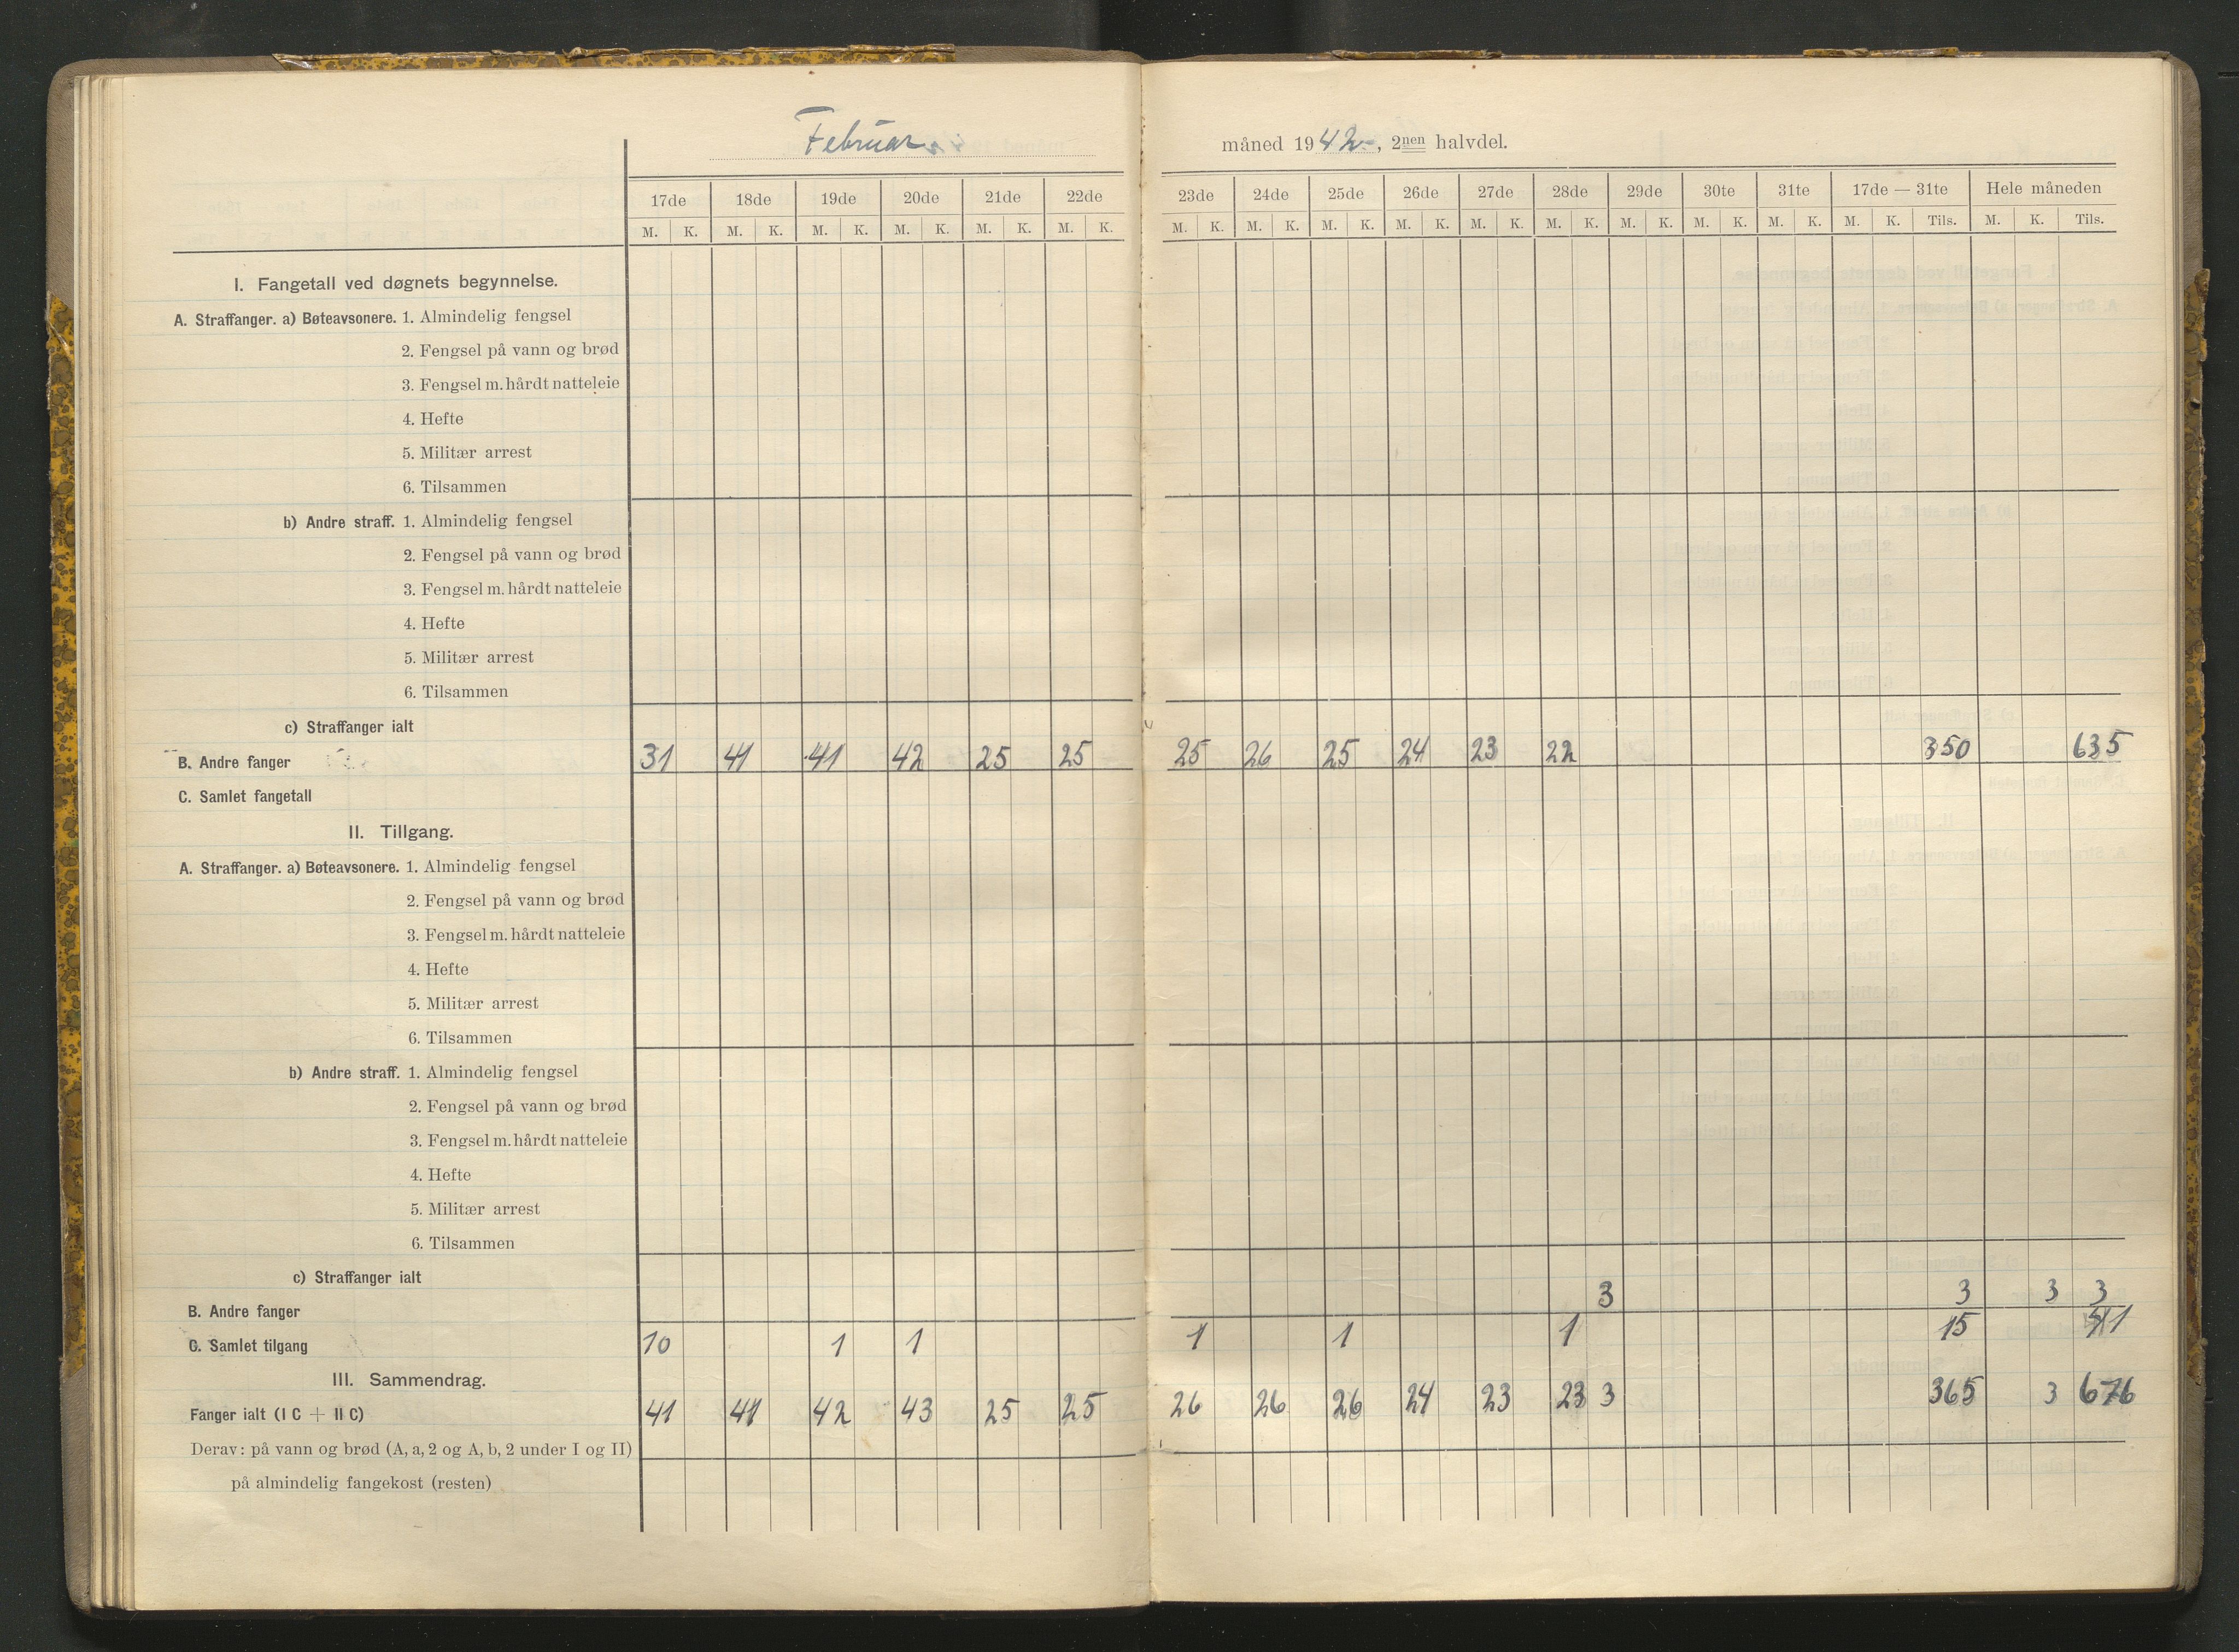 Februar
måned 1942-, 2nen halvdel.
17de 18de 19de 20de 21de 22de 23de 24de 25de 26de 27de 28de 29de 30te 31te 17de — 31te Hele måneden
M. K. M. K. M. K. M. K. M. K. M. K. M. K. M. K. M. K. M. K. M. K. M. K. M. K. M. K. M. K. M. K. Tils. M. K. Tils.
I. Fangetall ved døgnets begynnelse.
A. Straffanger. a) Bøteavsonere. 1. Almindelig fengsel
2. Fengsel på vann og brød
3. Fengsel m. hårdt natteleie
4. Hefte
5. Militær arrest
6. Tilsammen
b) Andre straff. 1. Almindelig fengsel
2. Fengsel på vann og brød
3. Fengsel m. hårdt natteleie
4. Hefte
5. Militær arrest
6. Tilsammen
c) Straffanger ialt
B. Andre fanger 31 41 41 42 25 25 25 26 25 24 23 22 350 635
C. Samlet fangetall
II. Tillgang.
A. Straffanger. a) Bøteavsonere. 1. Almindelig fengsel
2. Fengsel på vann og brød
3. Fengsel m. hårdt natteleie
4. Hefte
5. Militær arrest
6. Tilsammen
b) Andre straff. 1. Almindelig fengsel
2. Fengsel på vann og brød
3. Fengsel m. hårdt natteleie
4. Hefte
5. Militær arrest
6. Tilsammen
c) Straffanger ialt
B. Andre fanger 3 3 3 3
C. Samlet tilgang 10 1 1 1 1 1 15 41
III. Sammendrag.
Fanger ialt (I C + II C) 41 41 42 43 25 25 26 26 26 24 23 23 3 365 3 676
Derav: på vann og brød (A, a, 2 og A, b, 2 under I og II)
på almindelig fangekost (resten)